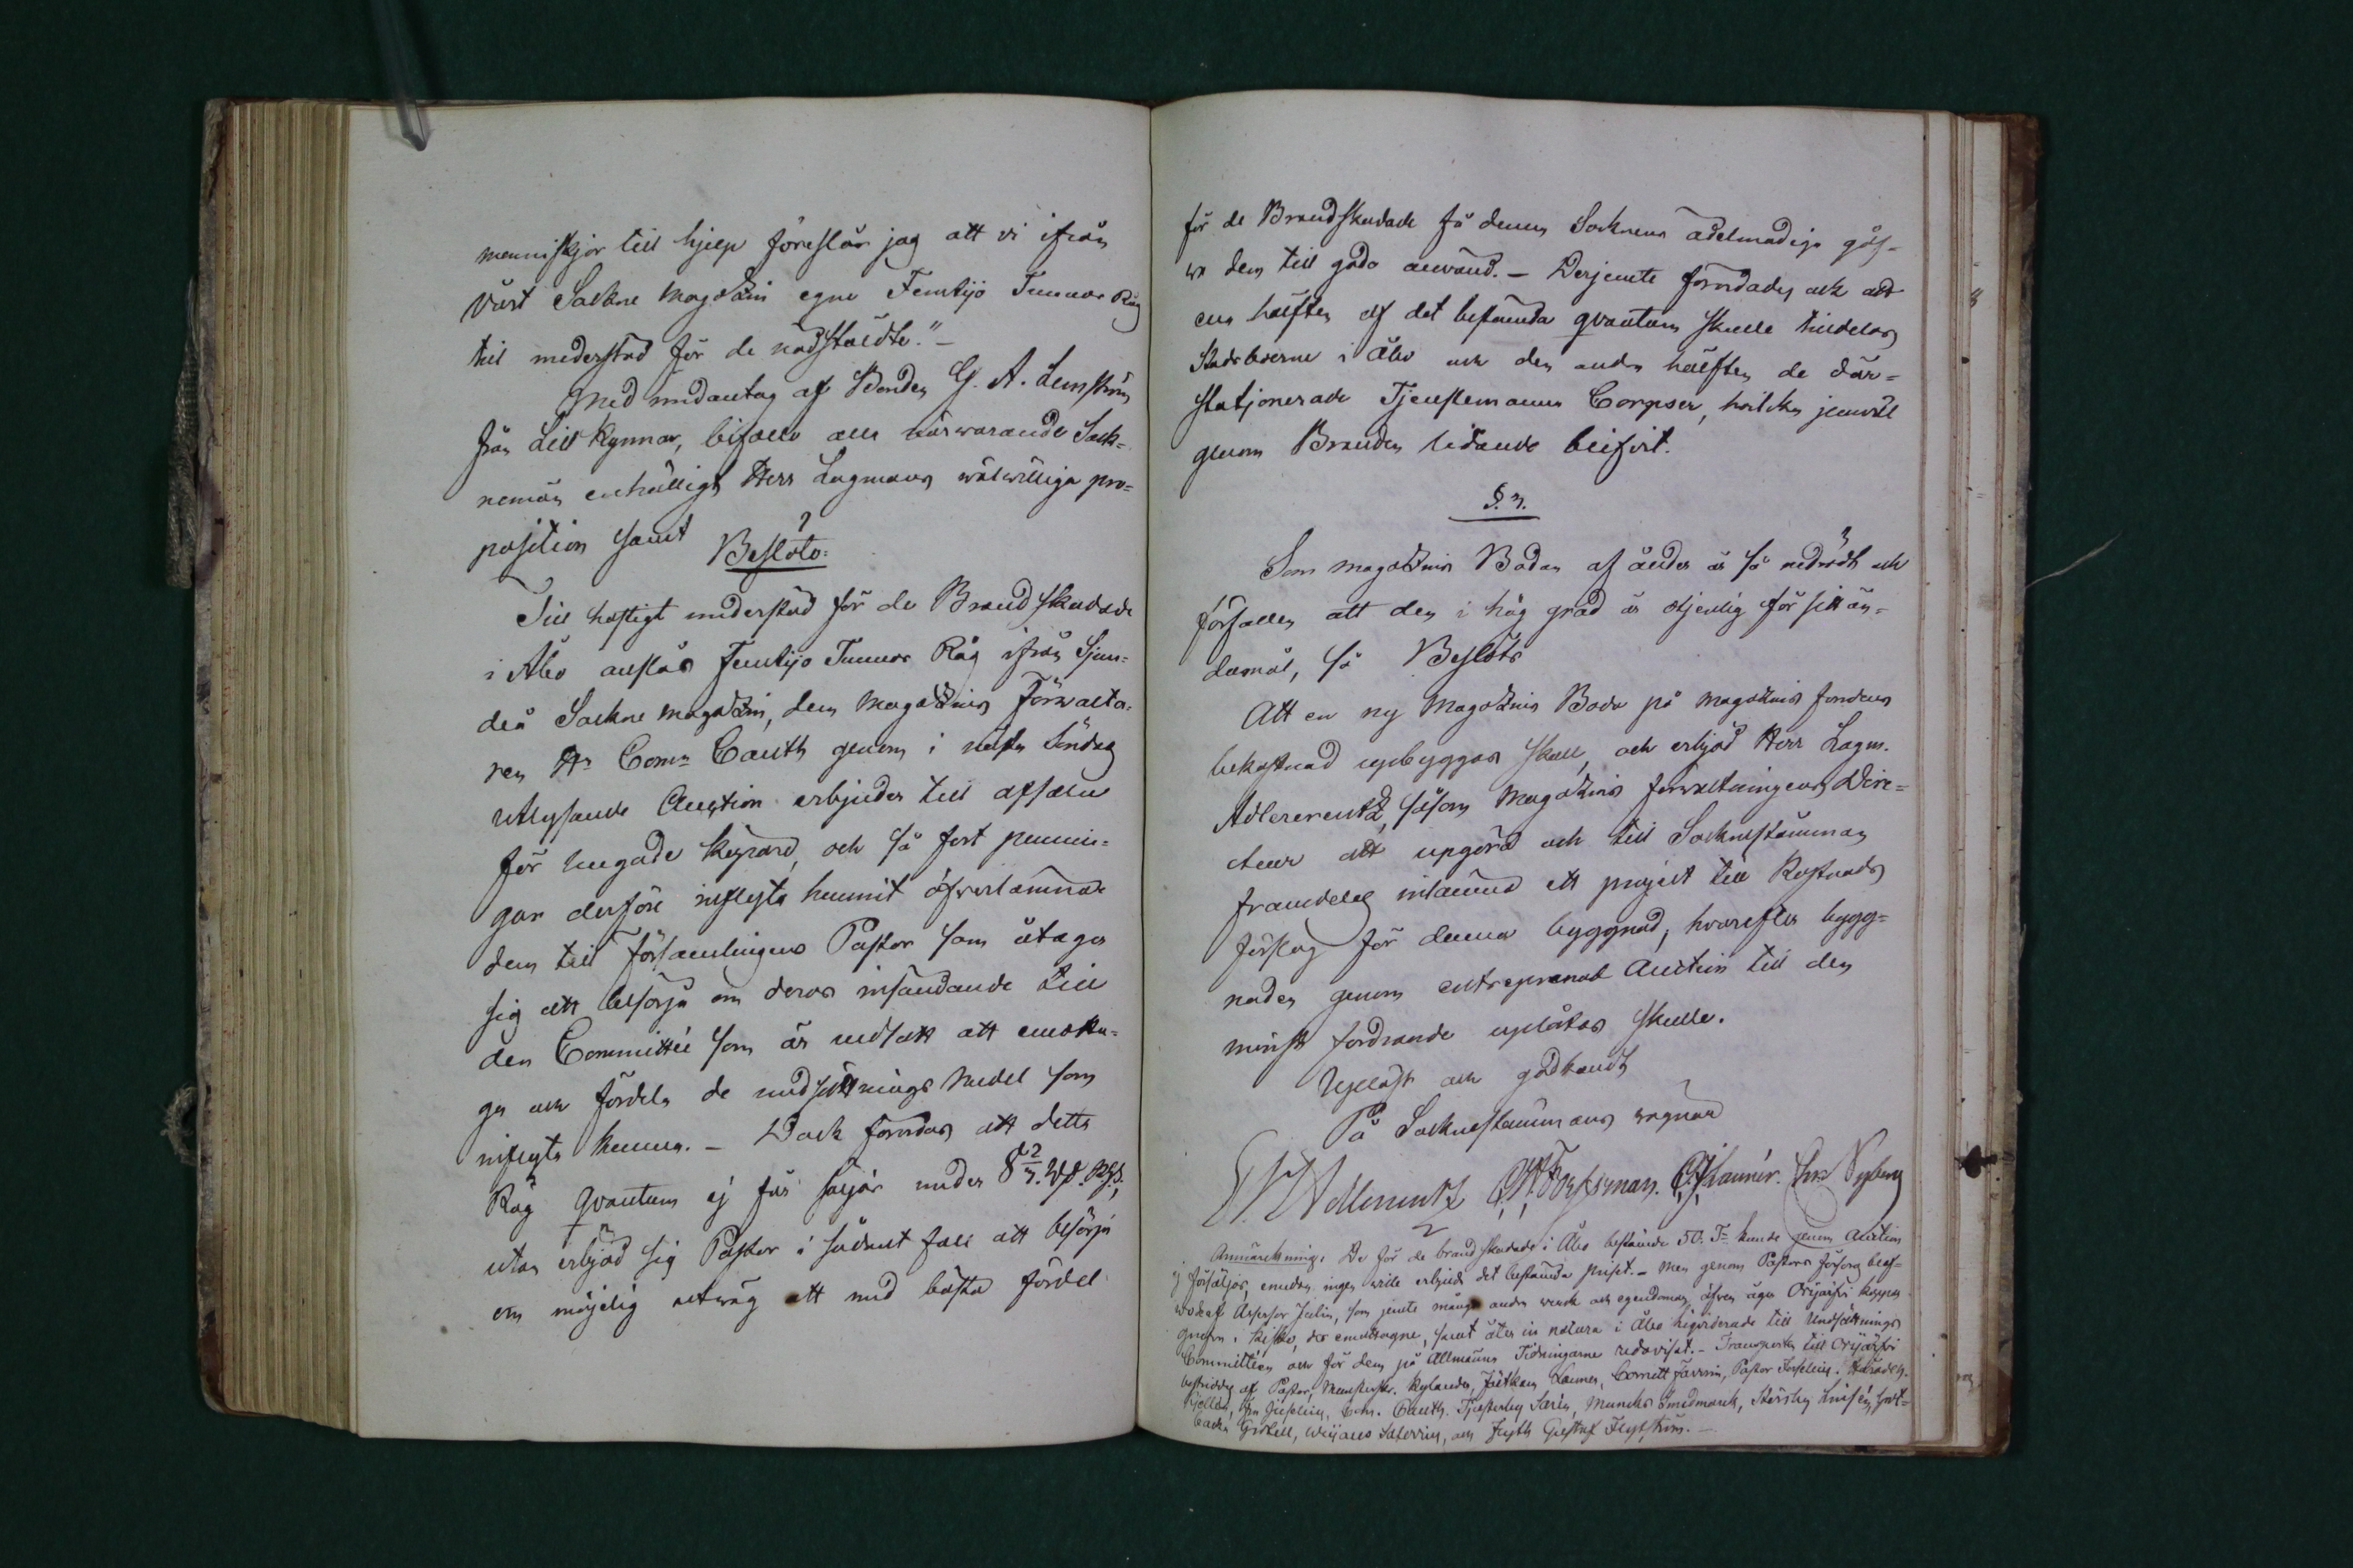 menniskjor till hjelp föreslår jag att vi ifrån
vårt Sockne Magatzin egne Femtijo Tunnor Råg
till understöd för de nödstäldte." -
Med undantag af Bonden G. A. Lemström
från Lill Kynnar, biföllo alla närvarande Sock-
nemän enhälligt Herr Lagmans wälwilliga pro-
position samt
Beslöto:
Till hastigt understöd för de Brandskadade
i Åbo anslås Femtijo Tunnor Råg ifrån Sjun-
deå Sockne magatzin, dem Magatzins Förvalta-
ren Hr Comr Cauth genom i nästa Söndag
utlysande Auction erbjuder till afsalu
för hugade köpare, och så fort pennin-
gar derföre influtit hunnit öfverlämnar
dem till Församlingens Pastor som åtager
sig att besörja om deras insändande till
den Committé som är nedsatt att emotta-
ga och fördela de undsättnings medel som
inflyta kunna. - Dock förordas att detta
Råg qvantum ej får säljas under 8 2/3. Rd. Rgs.,
utan erbjöd sig Pastor i sådant fall att besörja
om möjelig utväg att med bästa fördel
för de Brandskadade få denna Socknens ädelmodiga gåf-
wa dem till godo använd. - Derjemte förordades och att
ena hälften af det bestämda qvantum skulle tilldelas
Stadsboerne i Åbo och den andra hälften de där-
stationerade Tjenstemanna Corpser, hvilka jemväl
genom Branden lidande blifvit.
§. 3.
Som magatzins Bodan af ålder är så nedrödt och
förfallen att den i hög grad är otjenlig för sitt än-
damål, så Beslöts
Att en ny Magatzins Boda på magatzins fondens
bekostnad upbyggas skall, och erbjöd Herr Lagm.
Adlercreutz, såsom Magatzins förvaltningens Dire-
cteur att upgöra och till Socknestämman
framdeles inlämna ett project till Kostnads
förslag för denna byggnad, hvarefter bygg-
naden genom entreprenad Auction till den
minst fordrande uplåtas skulle.
Upläst och godkändt
På Socknestämmans vägnar
Adlercreutz Forsman. Launér. Nyberg
Anmärkning. De för de brandskadade i Åbo bestämde 50. Tr kunde genom Auction
ej försäljas, emedan ingen wille erbjuda det bestämda priset. - Men genom Pastors försorg blef-
wo de af Assessor Julin, som jemte många andra verk och egendomar, äfven äger Orijärfvi koppar
grufva i Kisko, der emottagne, samt åter in natura i Åbo leververade till Undsättnings
Committéen och för dem på Allmänna Tidningarne redovisat. - Transporten till Orijärfvi
bestriddes af Pastor, Munsterskr. Rylander, Launer, Cornett Pastor Forselius.
Hjelldn, Cauth. Smedmark,
Gästell, och Gustaf Flytström. -